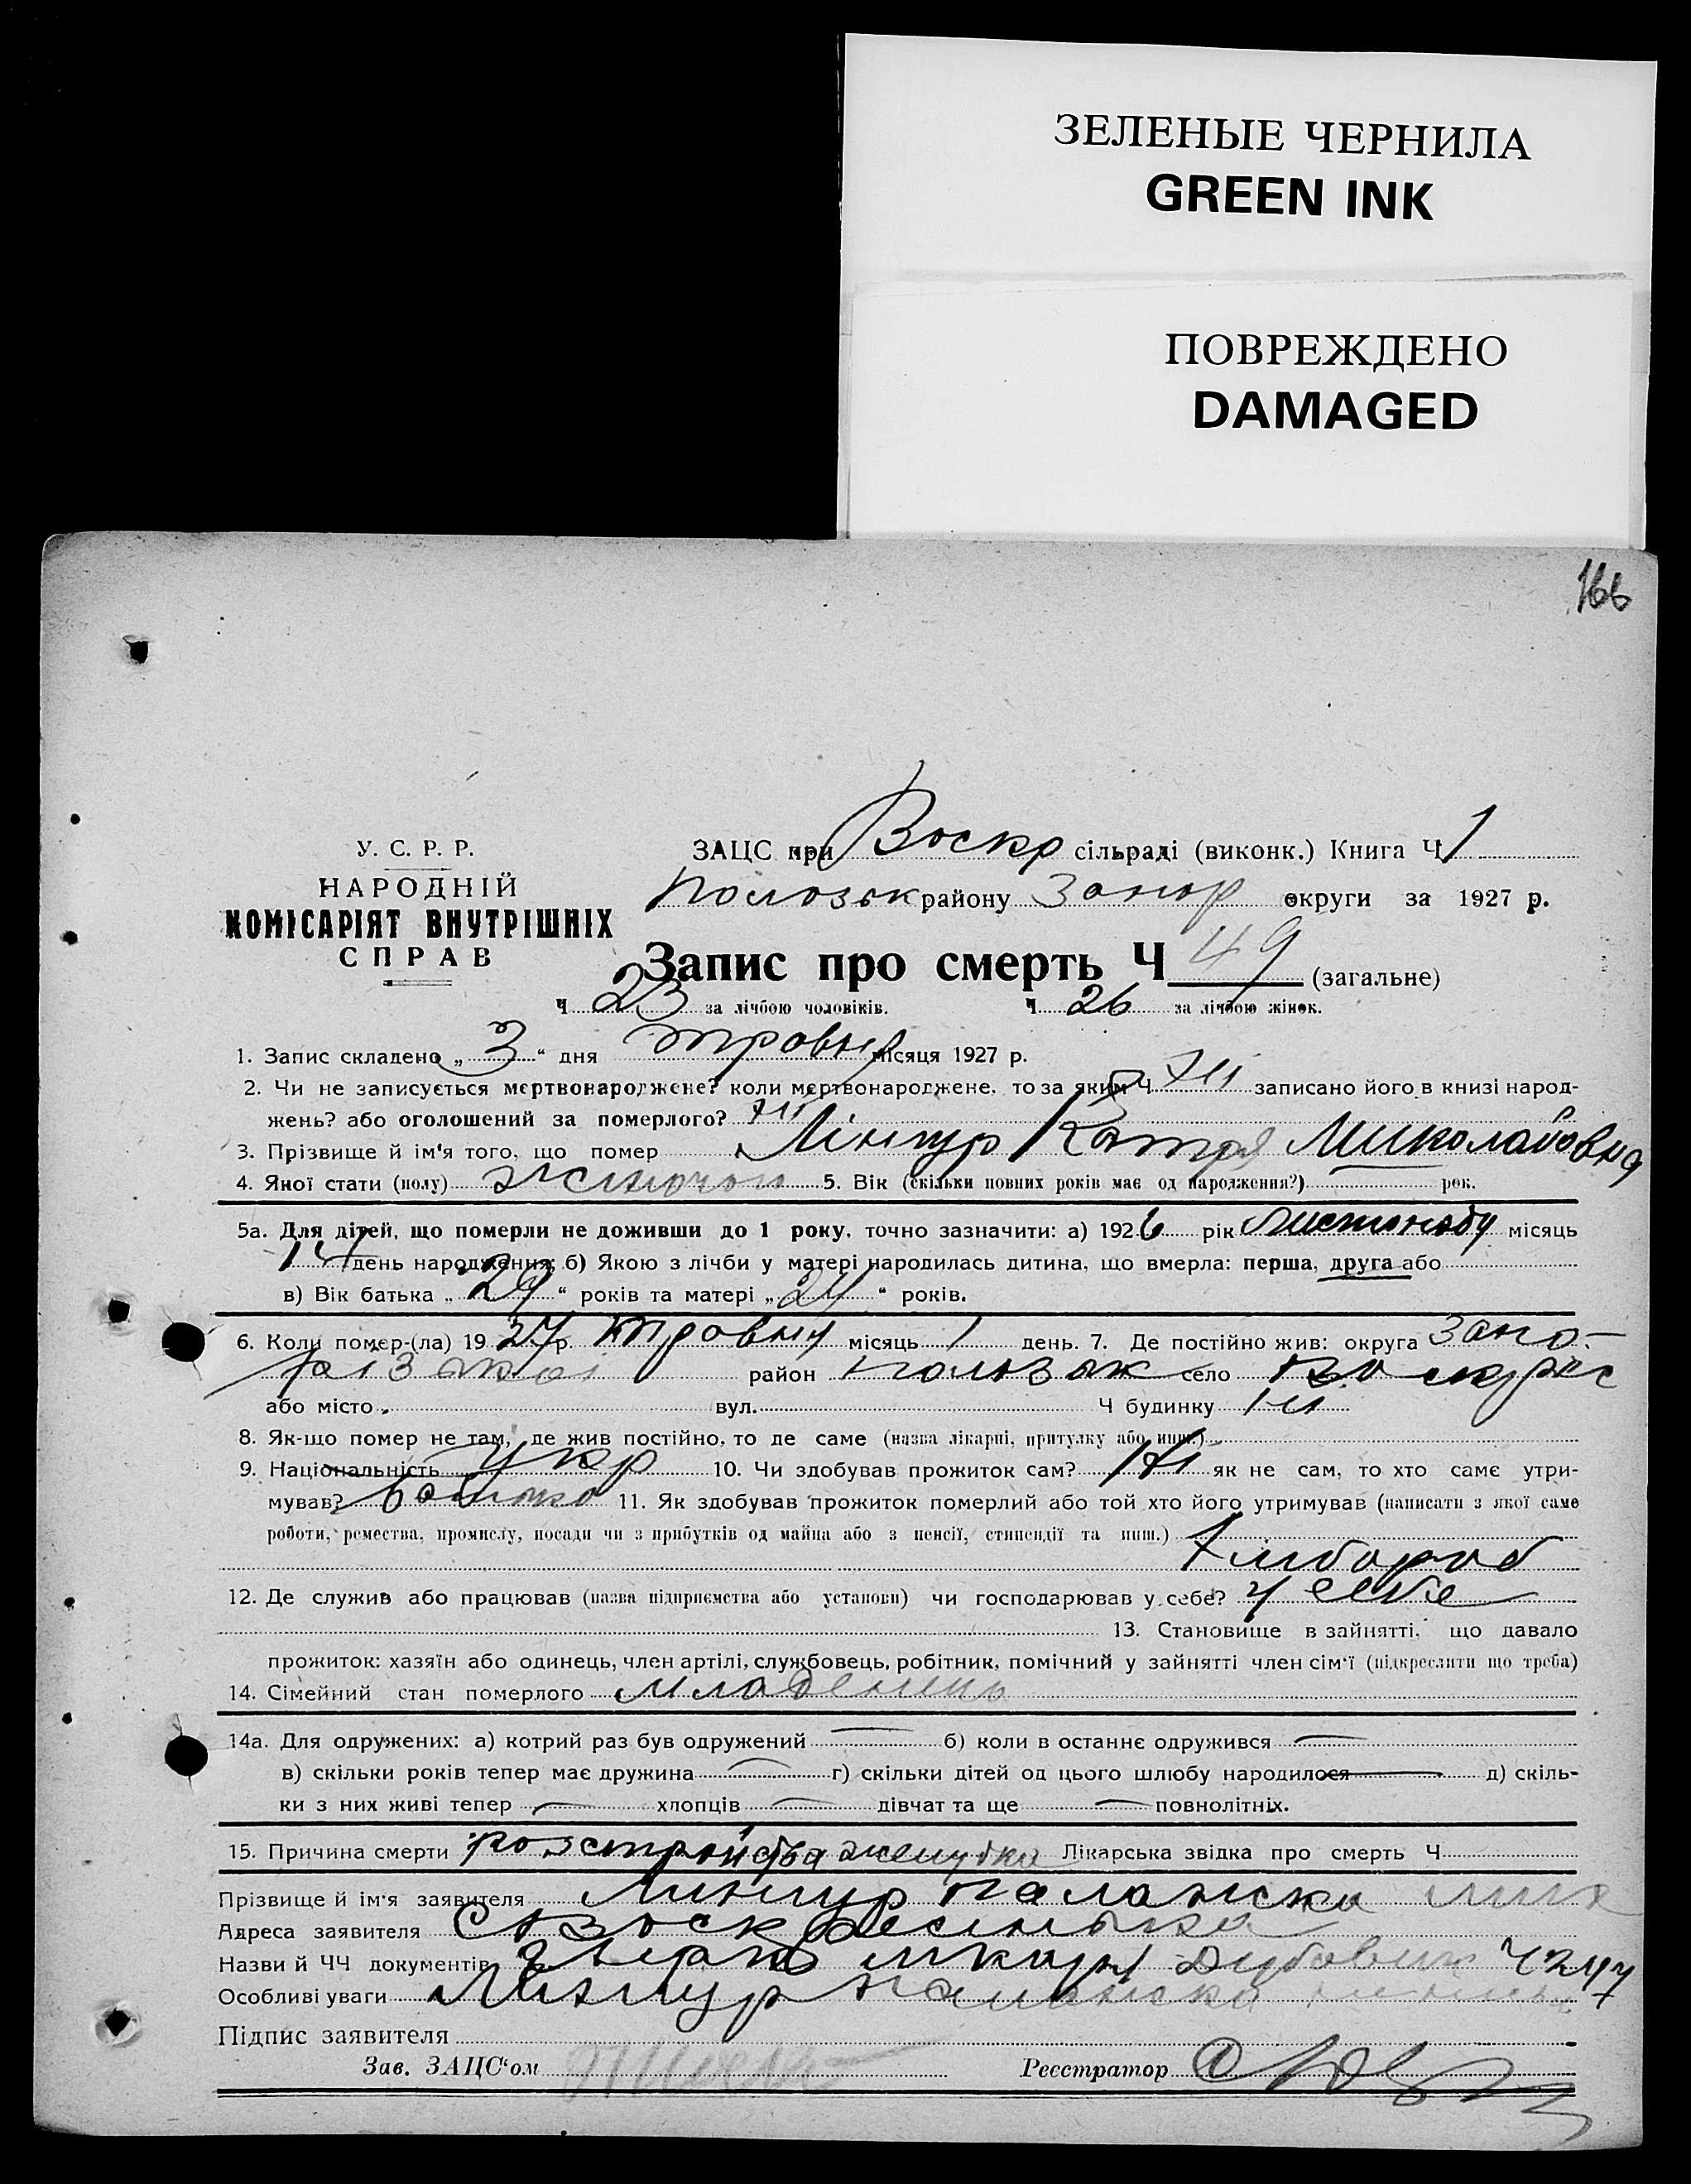 ЗЕЛЕНЫЕ ЧЕРНИЛА
GREEN INK
ПОВРЕЖДЕНО
DAMAGED
166
У. С. Р. Р.
НАРОДНІЙ
КОМІСАРІЯТ ВНУТРІШНІХ
СПРАВ
ЗАЦС при Воскр сільраді (виконк.) Книга Ч 1
району Запор округи за 1927 р.
Запис про смерть Ч 49 (загальне)
Ч 23 за лічбою чоловіків. Ч 26 за лічбою жінок.
1. Запис складено „ 3 “ дня травня місяця 1927 р.
2. Чи не записується мертвонароджене? коли мертвонароджене, то за яким Ч записано його в книзі народ-
жень? або оголошений за померлого?
3. Прізвище й ім'я того, що помер Лінгур Катря Миколайовна
4. Якої стати (полу) жіночого 5. Вік (скільки повних років має од народження?) рок.
5а. Для дітей, що померли не доживши до 1 року, точно зазначити: а) 1926 рік місяць
14 день народження; б) Якою з лічби у матері народилась дитина, що вмерла: перша, друга або
в) Вік батька „ 29 “ років та матері „ “ років.
6. Коли помер-(ла) 1927 р. травня місяць 1 день. 7. Де постійно жив: округа Запо-
різької район село
або місто вул. Ч будинку
8. Як-що помер не там, де жив постійно, то де саме (назва лікарні, притулку або инш.)
9. Національність Укр 10. Чи здобував прожиток сам? Ні як не сам, то хто саме утри-
мував? батько 11. Як здобував прожиток померлий або той хто його утримував (написати з якої саме
роботи, ремества, промислу, посади чи з прибутків од майна або з пенсії, стипендії та инш.)
хлібороб
12. Де служив або працював (назва підприємства або установи) чи господарював у себе? у себе
13. Становище в зайнятті, що давало
прожиток: хазяїн або одинець, член артілі, службовець, робітник, помічний у зайнятті член сім'ї (підкреслити що треба)
14. Сімейний стан померлого младенець
14а. Для одружених: а) котрий раз був одружений б) коли в останнє одружився
в) скільки років тепер має дружина г) скільки дітей од цього шлюбу народилося д) скіль-
ки з них живі тепер хлопців дівчат та ще повнолітніх.
15. Причина смерти розстройства желудка Лікарська звідка про смерть Ч
Прізвище й ім'я заявителя Лингур
Адреса заявителя С Воскресенька
Назви й ЧЧ документів Ч 247
Особливі уваги Лингур
Підпис заявителя
Зав. ЗАЦС'ом
Реєстратор